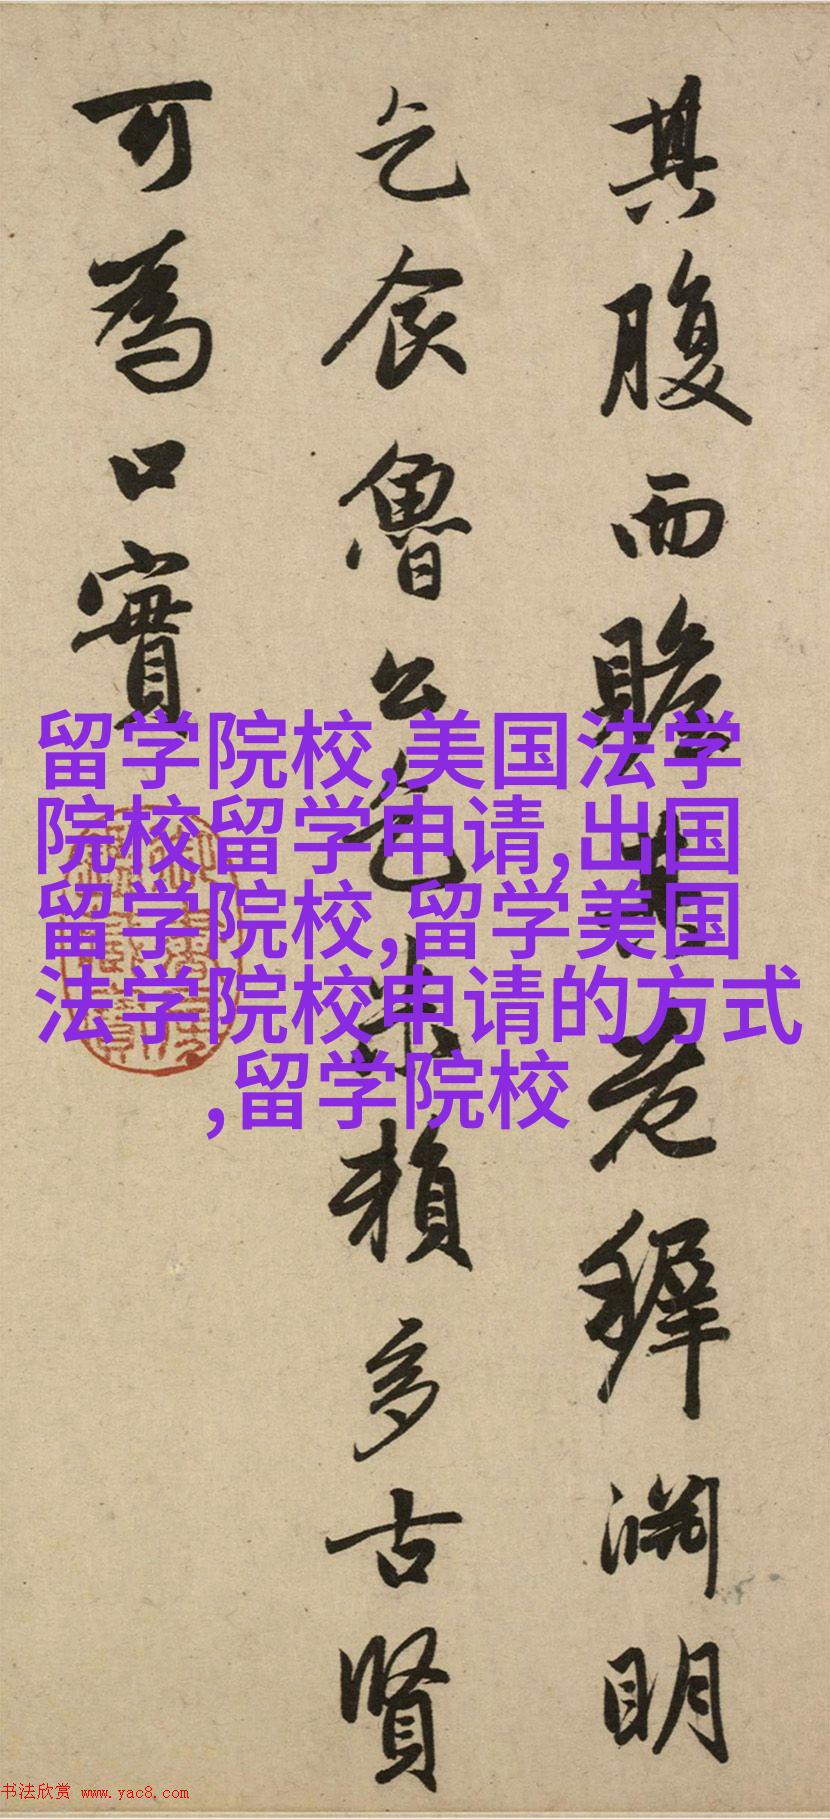 其腹而贍其老稺淵明
乞食魯公乞米賴多古賢
可為口實
留学院校,美国法学
院校留学申请,出国
留学院校,留学美国
法学院校申请的方式
,留学院校
书法欣赏 www.yac8.com